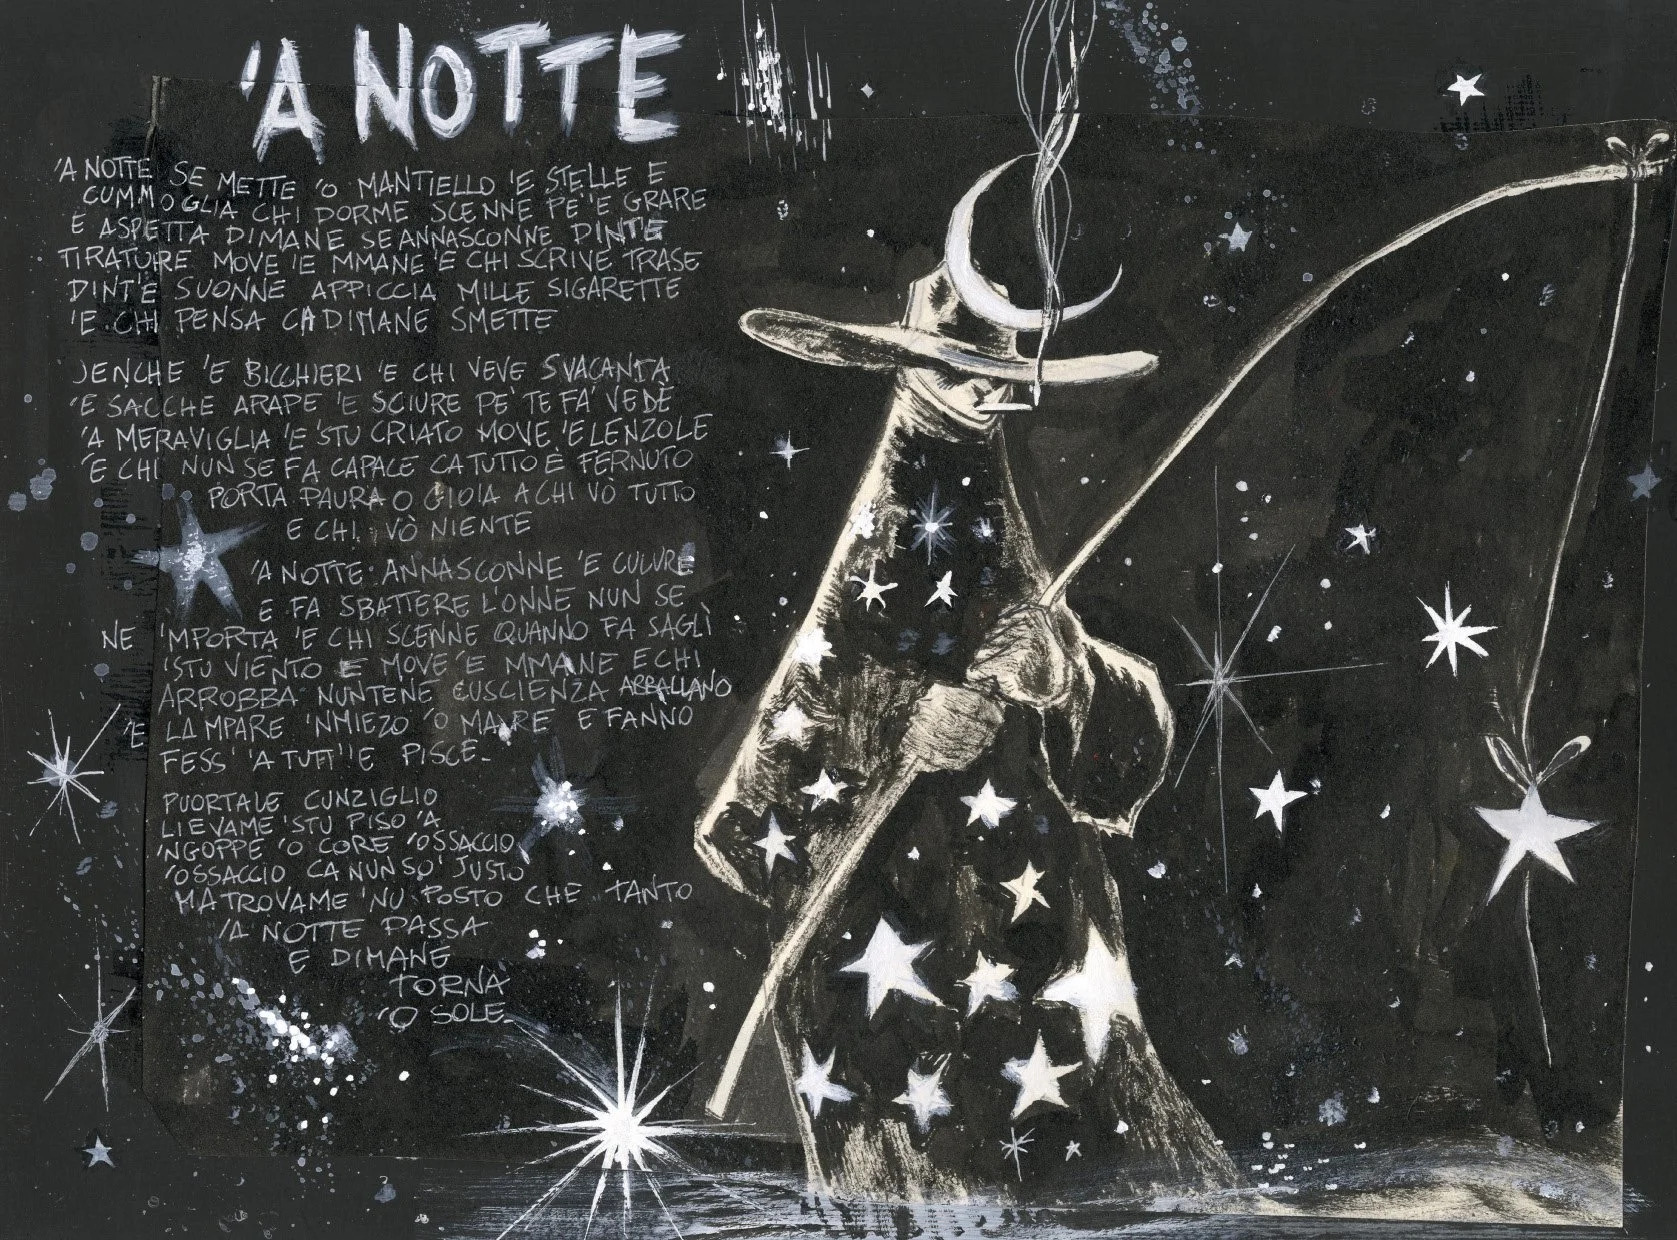 'A NOTTE
'A NOTTE SE METTE 'O MANTIELLO 'E STELLE E
CUMMOGLIA CHI DORME SCENNE PE' 'E GRARE
E ASPETTA DIMANE SE ANNASCONNE DINT'E
TIRATURE MOVE 'E MMANE 'E CHI SCRIVE TRASE
DINT'E SUONNE APPICCIA MILLE SIGARETTE
'E CHI PENSA CA DIMANE SMETTE
JENCHE 'E BICCHIERI 'E CHI VEVE SVACANTA
'E SACCHE ARAPE 'E SCIURE PE' TE FA' VEDÈ
'A MERAVIGLIA 'E 'STU CRIATO MOVE 'E LENZOLE
'E CHI NUN SE FA CAPACE CA TUTTO È FERNUTO
PORTA PAURA O GIOIA A CHI VÒ TUTTO
E CHI VÒ NIENTE
'A NOTTE ANNASCONNE 'E CULURE
E FA SBATTERE L'ONNE NUN SE
NE 'MPORTA 'E CHI SCENNE QUANNO FA SAGLÌ
'STU VIENTO E MOVE 'E MMANE E CHI
ARROBBA NUN TENE CUSCIENZA ABBALLANO
'E LAMPARE 'NMIEZO 'O MARE E FANNO
FESS' 'A TUTT' 'E PISCE
PUORTALE CUNZIGLIO
LIEVAME 'STU PISO 'A
'NGOPPE 'O CORE 'OSSACCIO
'OSSACCIO CA NUN SO' JUSTO
MA TROVAME 'NU POSTO CHE TANTO
'A NOTTE PASSA
E DIMANE
TORNA
'O SOLE